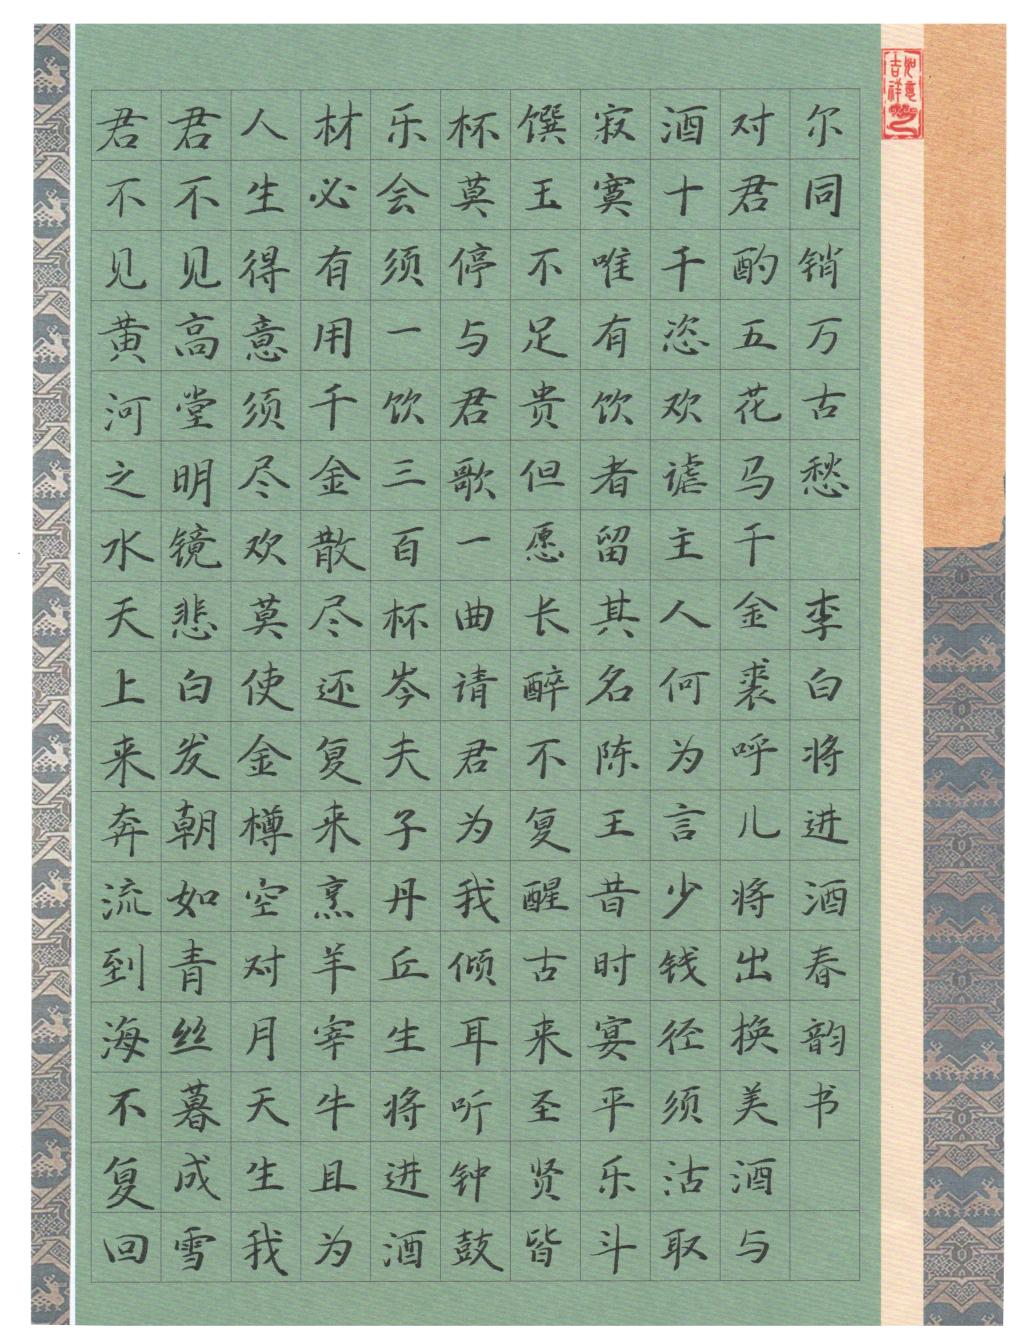 君不见黄河之水天上来奔流到海不复回
君不见高堂明镜悲白发朝如青丝暮成雪
人生得意须尽欢莫使金樽空对月天生我
材必有用千金散尽还复来烹羊宰牛且为
乐会须一饮三百杯岑夫子丹丘生将进酒
杯莫停与君歌一曲请君为我倾耳听钟鼓
馔玉不足贵但愿长醉不复醒古来圣贤皆
寂寞唯有饮者留其名陈王昔时宴平乐斗
酒十千恣欢谑主人何为言少钱径须沽取
对君酌五花马千金裘呼儿将出换美酒与
尔同销万古愁 李白将进酒春韵书
如意吉祥